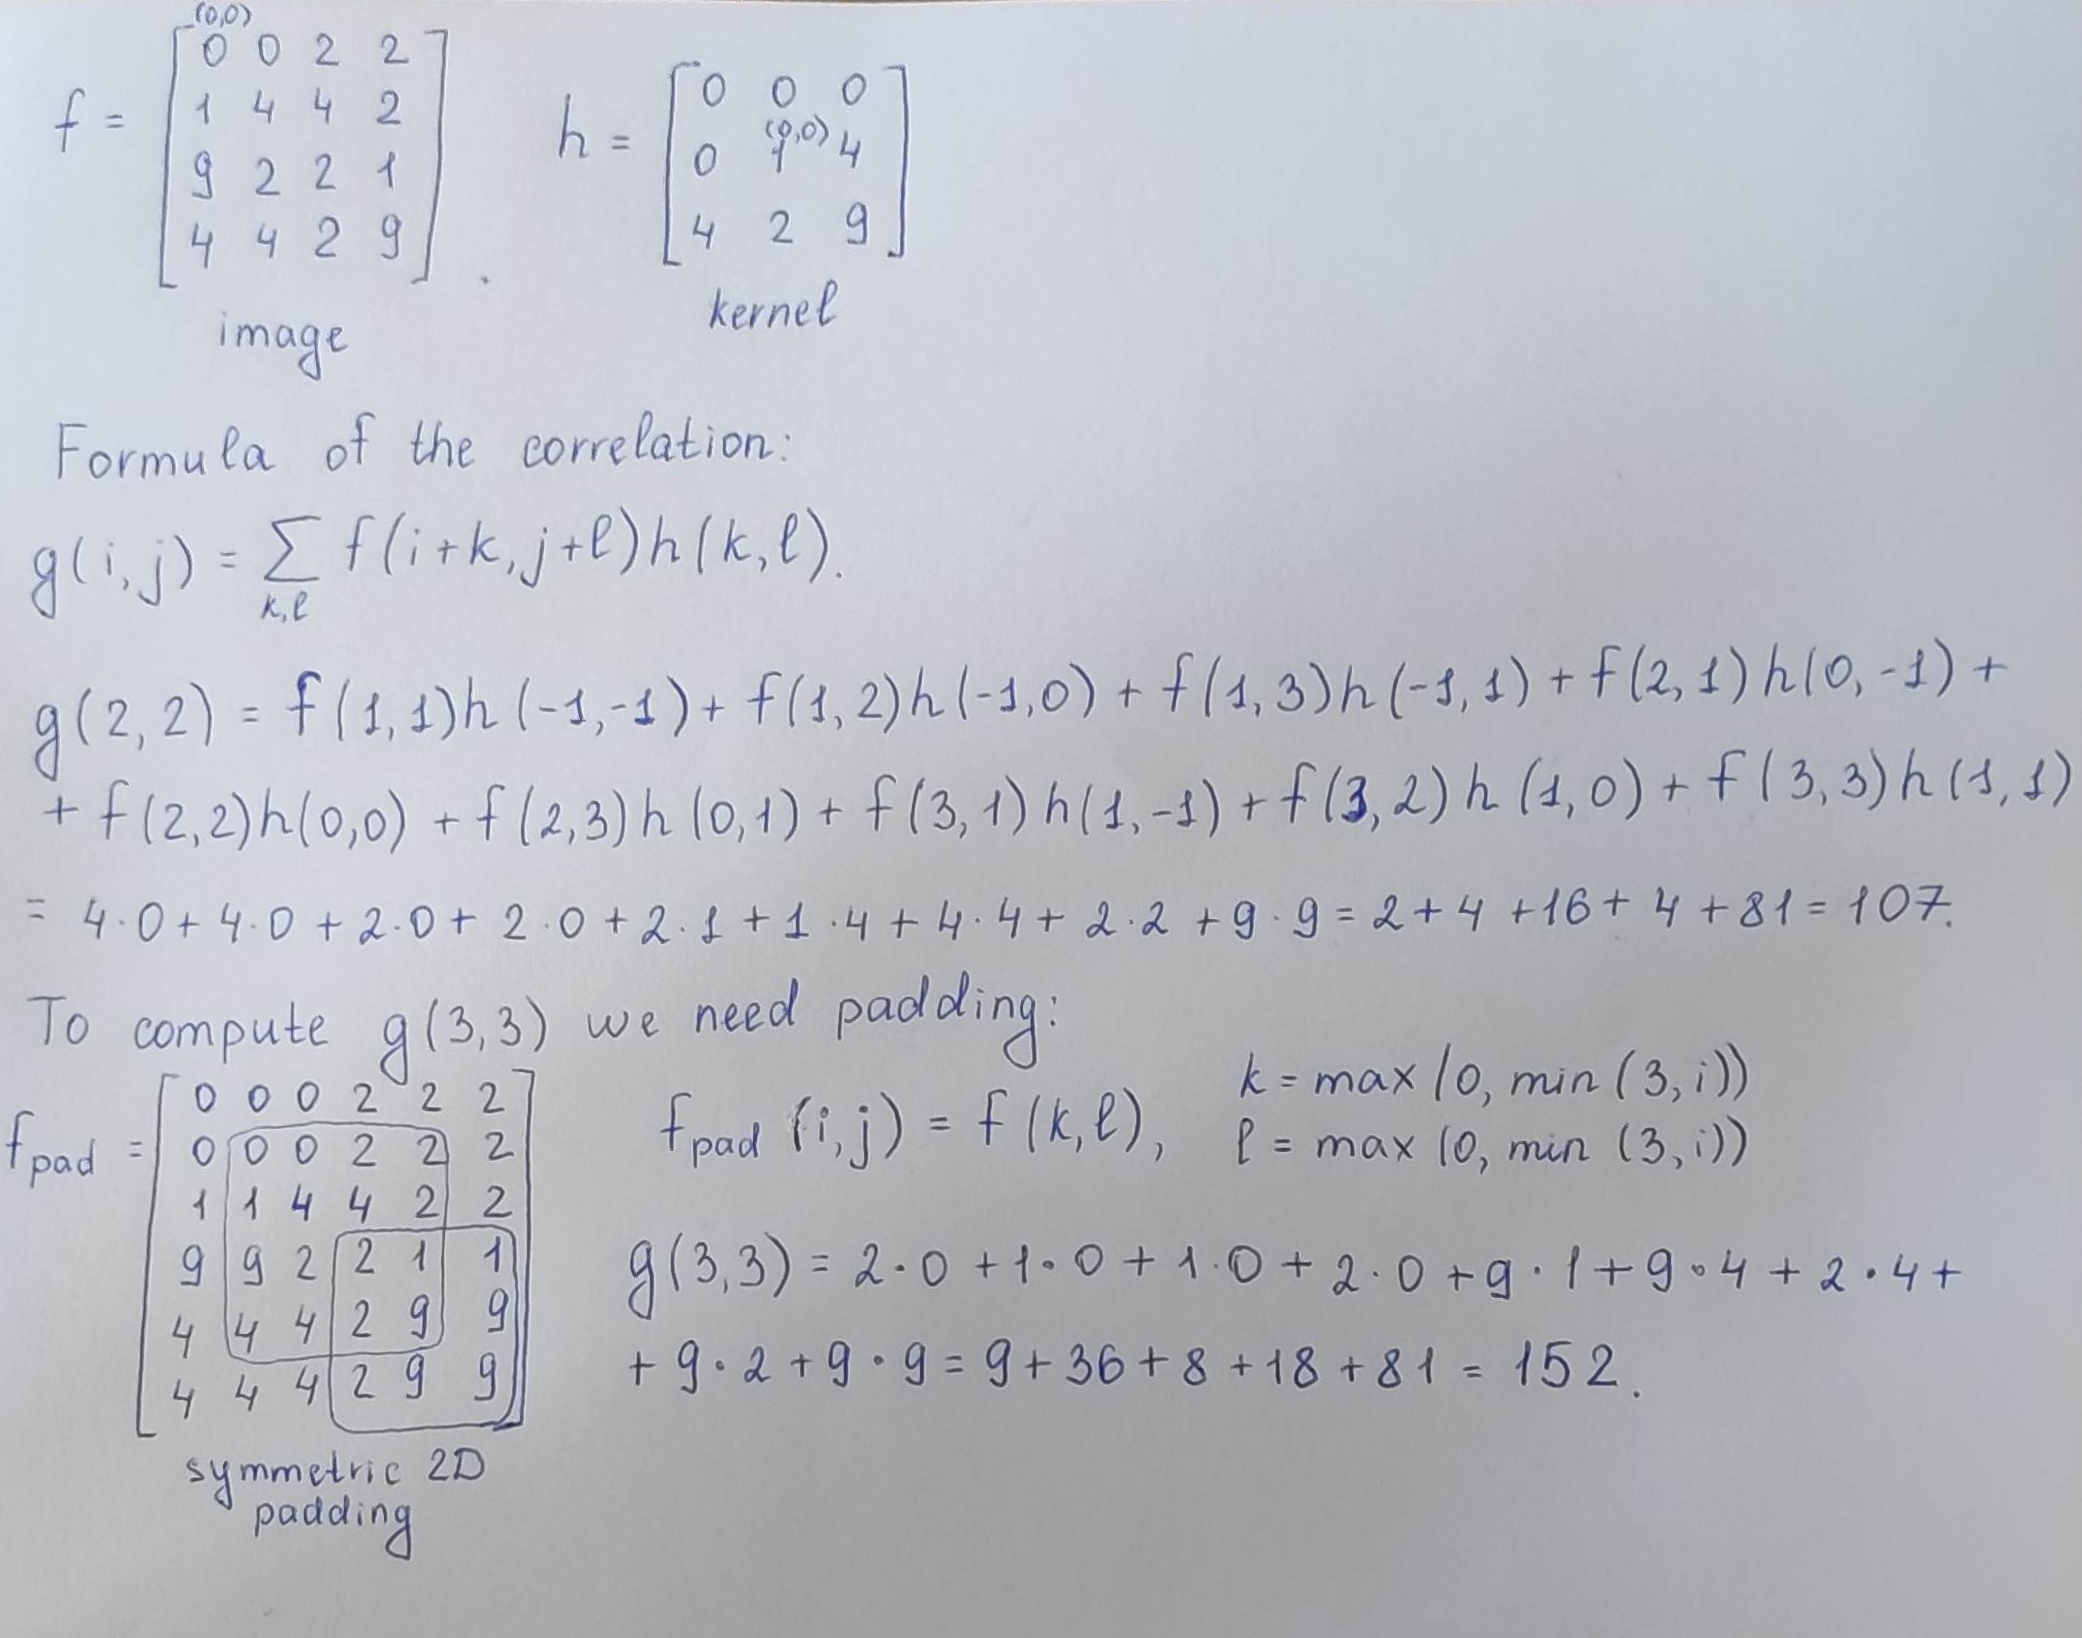 (0,0)
f = [ 0 0 2 2
1 4 4 2
9 2 2 1
4 4 2 9 ] .
image
h = [ 0 0 0
(0,0)
0 1 4
4 2 9 ]
kernel
Formula of the correlation:
g(i,j) = Σ f(i+k, j+l)h(k,l).
k,l
g(2,2) = f(1,1)h(-1,-1) + f(1,2)h(-1,0) + f(1,3)h(-1,1) + f(2,1)h(0,-1) +
+ f(2,2)h(0,0) + f(2,3)h(0,1) + f(3,1)h(1,-1) + f(3,2)h(1,0) + f(3,3)h(1,1)
= 4·0 + 4·0 + 2·0 + 2·0 + 2·1 + 1·4 + 4·4 + 2·2 + 9·9 = 2 + 4 + 16 + 4 + 81 = 107.
To compute g(3,3) we need padding:
f pad = [ 0 0 0 2 2 2
0 0 0 2 2 2
1 1 4 4 2 2
9 9 2 2 1 1
4 4 4 2 9 9
4 4 4 2 9 9 ]
symmetric 2D
padding
f pad (i,j) = f(k,l), k = max(0, min(3,i))
l = max(0, min(3,i))
g(3,3) = 2·0 + 1·0 + 1·0 + 2·0 + 9·1 + 9·4 + 2·4 +
+ 9·2 + 9·9 = 9 + 36 + 8 + 18 + 81 = 152.